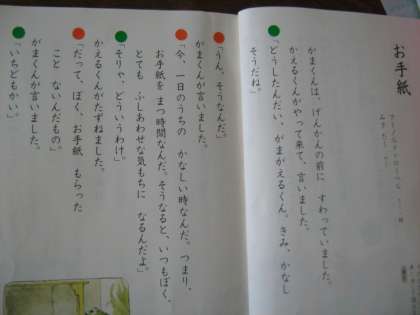 お手紙
がまくんは、げんかんの前に すわっていました。
かえるくんがやって来て、言いました。
「どうしたんだい、がまがえるくん。きみ、かなし
そうだね。」
「うん、そうなんだ。」
がまくんが言いました。
「今、一日のうちの かなしい時なんだ。つまり、
お手紙を まつ時間なんだ。そうなると、いつもぼく、
とても ふしあわせな気もちに なるんだよ。」
「そりゃ、どういうわけ。」
かえるくんがたずねました。
「だって、ぼく、お手紙 もらった
こと ないんだもの。」
がまくんが言いました。
「いちどもかい。」